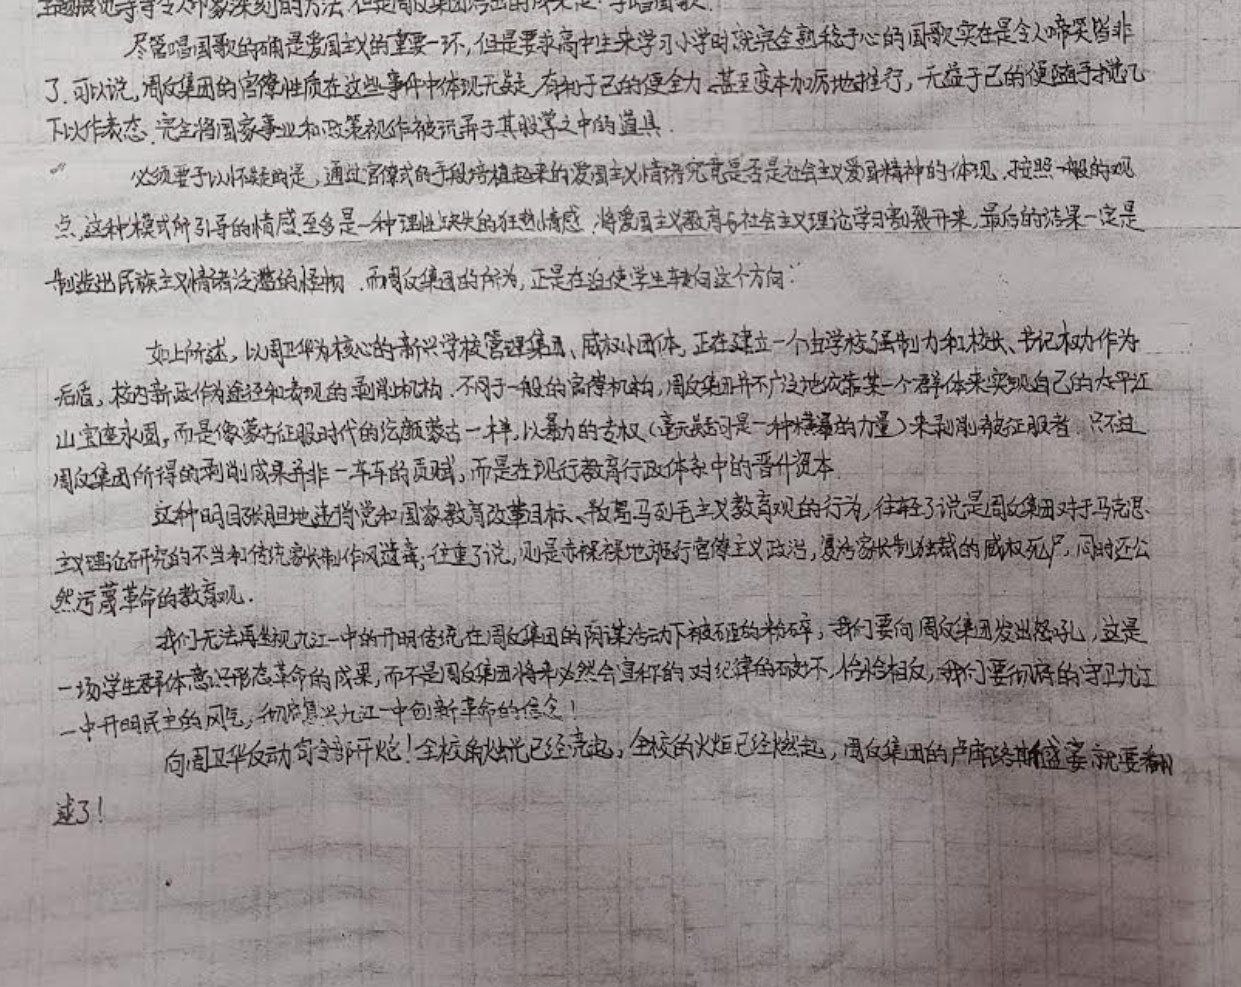 主题展览等等令人印象深刻的方法,但是周反集团给出的成果是:学唱国歌.
尽管唱国歌的确是爱国主义的重要一环,但是要求高中生来学习小学时就完全熟稔于心的国歌实在是令人啼笑皆非
了.可以说,周反集团的官僚性质在这些事件中体现无疑,有利于己的便全力、甚至变本加厉地推行,无益于己的便随手抛几
下以作表态.完全将国家事业和政策视作被玩弄于其股掌之中的道具.
必须要予以怀疑的是,通过官僚式的手段培植起来的爱国主义情绪究竟是否是社会主义爱国精神的体现.按照一般的观
点,这种模式所引导的情感至多是一种理性缺失的狂热情感.将爱国主义教育与社会主义理论学习割裂开来,最后的结果一定是
制造出民族主义情绪泛滥的怪物.而周反集团的所为,正是在迫使学生转向这个方向.
如上所述,以周卫华为核心的新兴学校管理集团、威权小团体,正在建立一个由学校强制力和校长、书记权力作为
后盾,校内新政作为途径和表现的剥削机构.不同于一般的官僚机构,周反集团并不广泛地依靠某一个群体来实现自己的太平江
山宝座永固,而是像蒙古征服时代的忔颜蒙古一样,以暴力的专权(毫无疑问是一种横暴的力量)来剥削被征服者.只不过
周反集团所得的剥削成果并非一车车的贡赋,而是在现行教育行政体系中的晋升资本.
这种明目张胆地违背党和国家教育改革目标、敌骂马列毛主义教育观的行为,往轻了说是周反集团对于马克思
主义理论研究的不当和传统家长制作风遗毒;往重了说,则是赤裸裸地推行官僚主义政治,复活家长制独裁的威权死尸,同时还公
然污蔑革命的教育观.
我们无法再坐视九江一中的开明传统在周反集团的阴谋活动下被砸的粉碎,我们要向周反集团发出怒吼,这是
一场学生群体意识形态革命的成果,而不是周反集团将来必然会宣称的对纪律的破坏,恰恰相反,我们要彻底的守卫九江
一中开明民主的风气,彻底复兴九江一中创新革命的信念!
向周卫华反动司令部开炮!全校的烛光已经亮起,全校的火炬已经燃起,周反集团的卢库洛斯盛宴就要翻
过了!